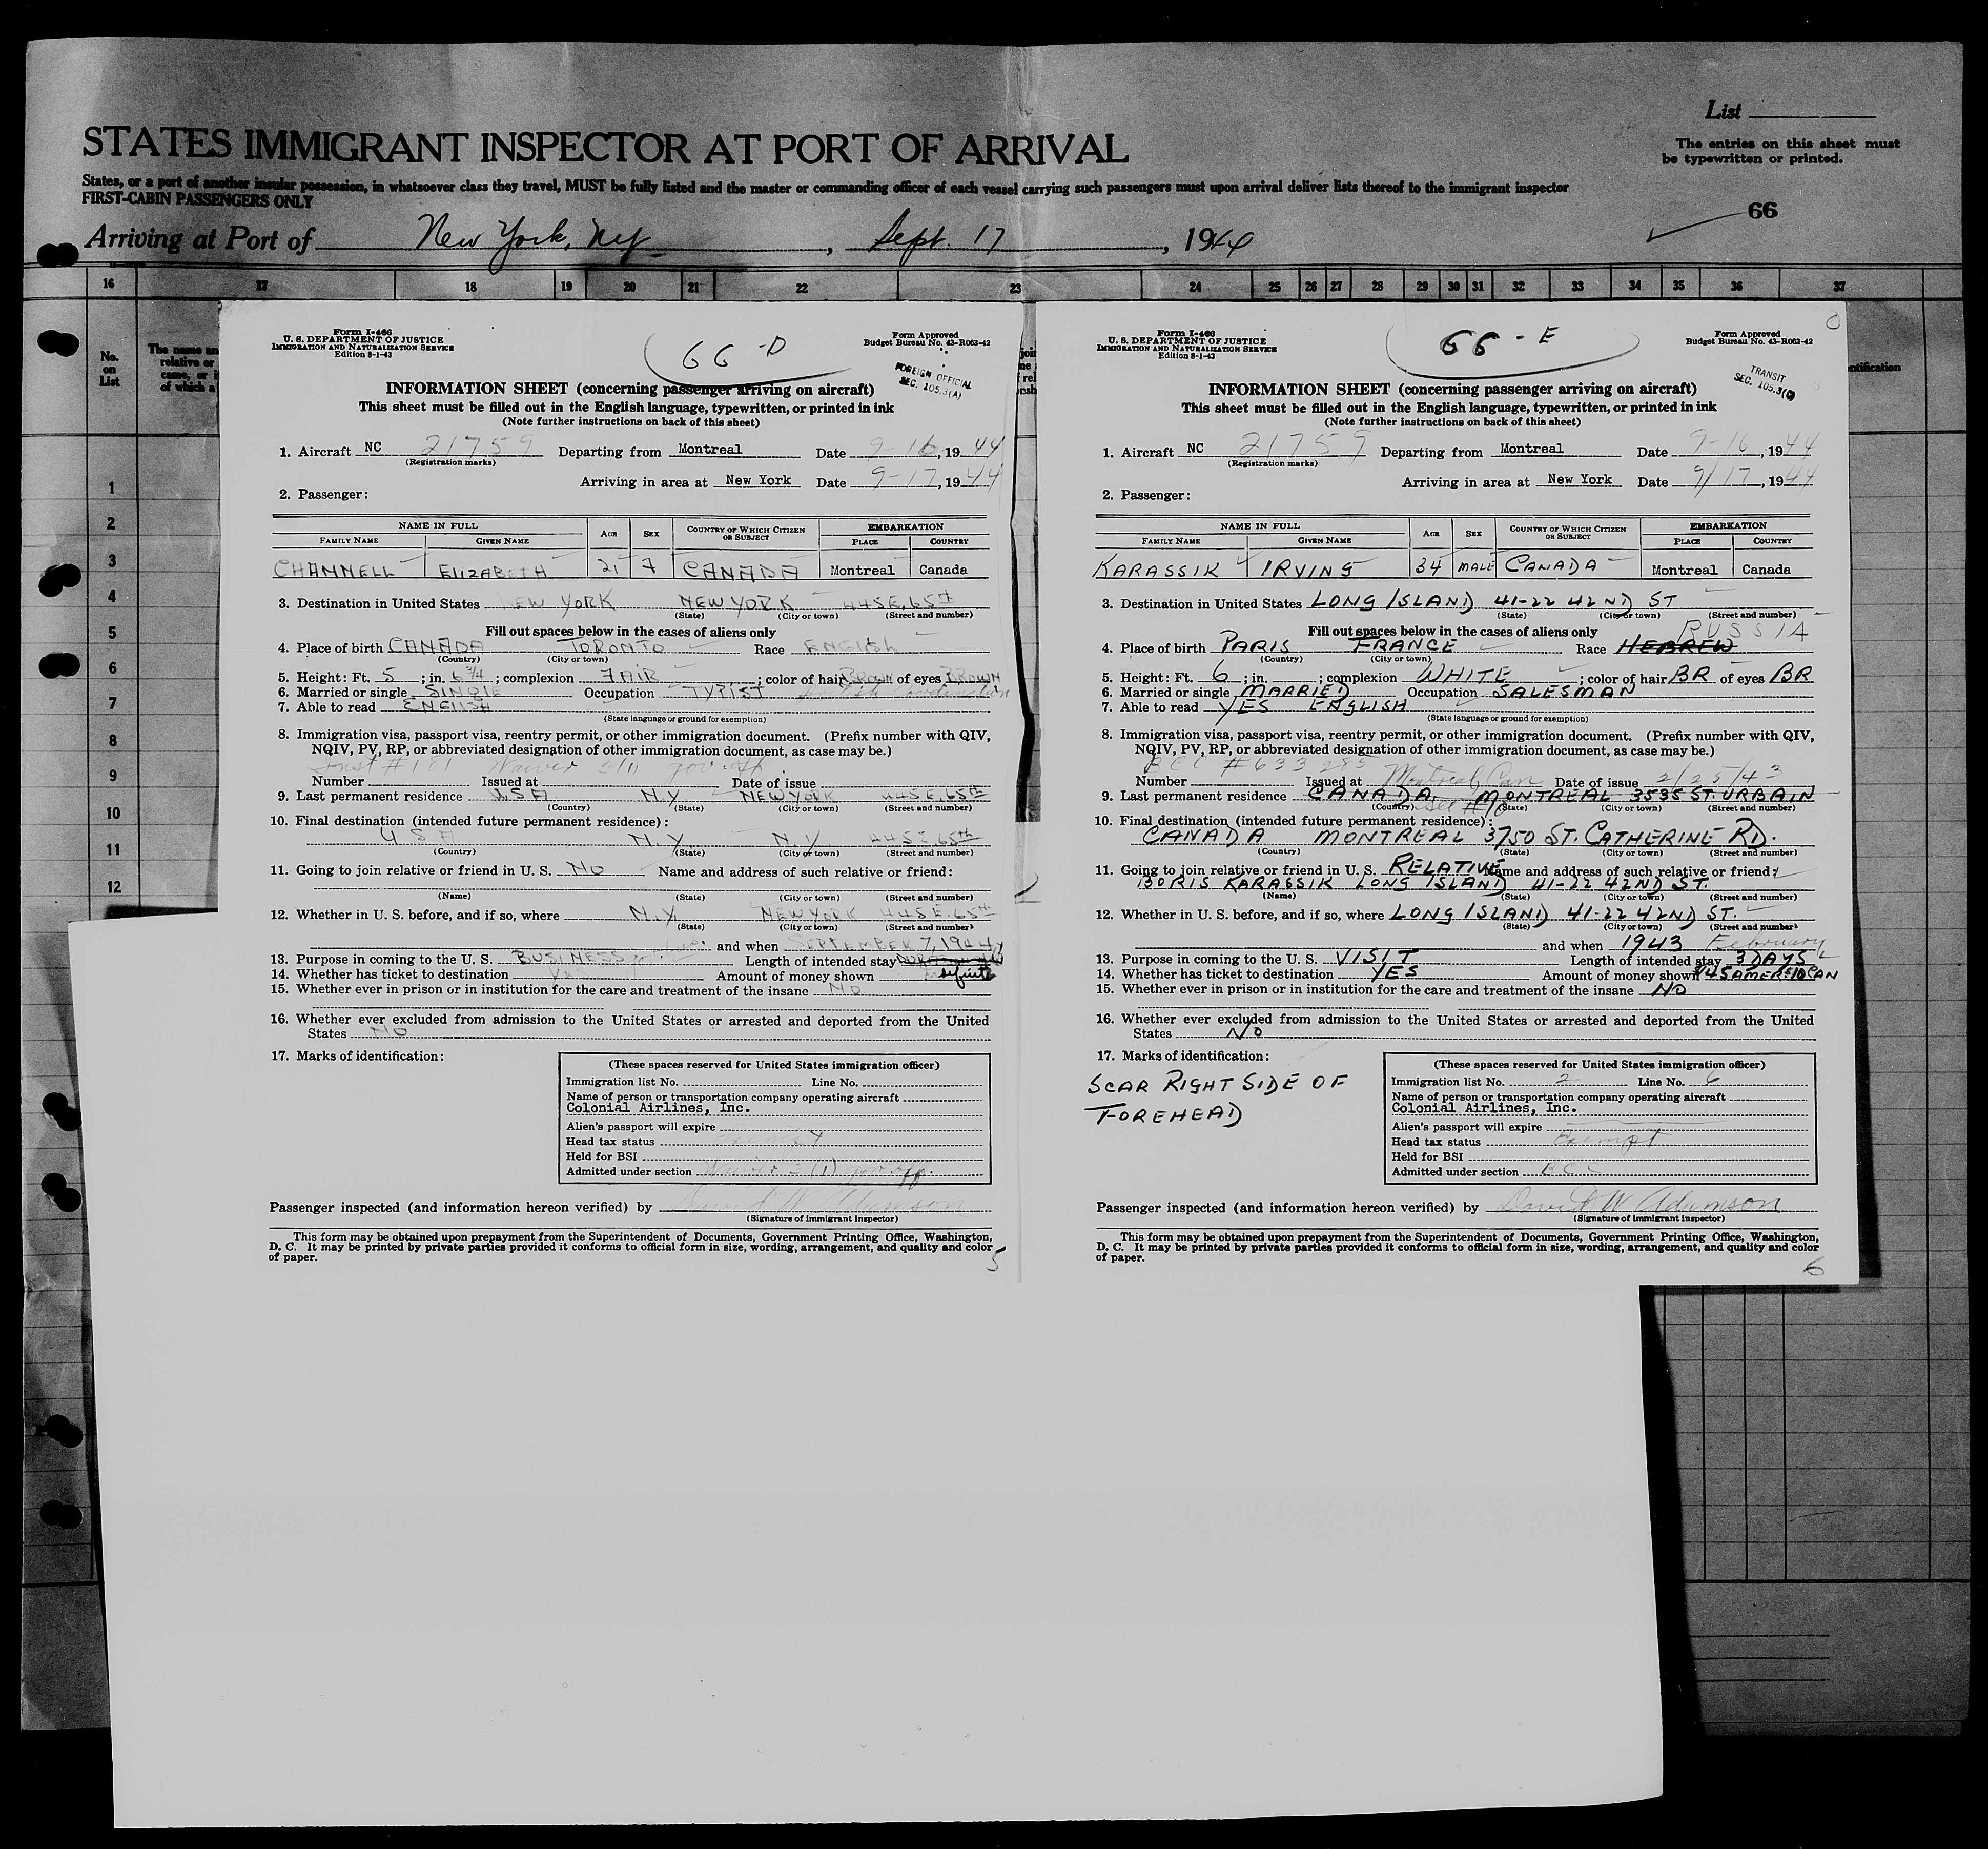 List
STATES IMMIGRANT INSPECTOR AT PORT OF ARRIVAL
The entries on this sheet must
be typewritten or printed.
States, or a port of another insular possession, in whatsoever class they travel, MUST be fully listed and the master or commanding officer of each vessel carrying such passengers must upon arrival deliver lists thereof to the immigrant inspector
FIRST-CABIN PASSENGERS ONLY
66
Arriving at Port of New York, NY, Sept. 17, 1944
16 17 18 19 20 21 22 23 24 25 26 27 28 29 30 31 32 33 34 35 36 37
No.
on
List
The name an
relative or
came, or i
of which a
1
2
3
4
5
6
7
8
9
10
11
12
Form I-466
U. S. DEPARTMENT OF JUSTICE
IMMIGRATION AND NATURALIZATION SERVICE
Edition 8-1-43
66-D
Form Approved
Budget Bureau No. 43-R063-42
FOREIGN OFFICIAL
SEC. 105.3(A)
INFORMATION SHEET (concerning passenger arriving on aircraft)
This sheet must be filled out in the English language, typewritten, or printed in ink
(Note further instructions on back of this sheet)
1. Aircraft NC 21759 Departing from Montreal Date 9-16, 1944
(Registration marks)
Arriving in area at New York Date 9-17, 1944
2. Passenger:
NAME IN FULL AGE SEX COUNTRY OF WHICH CITIZEN OR SUBJECT EMBARKATION
FAMILY NAME GIVEN NAME PLACE COUNTRY
CHANNELL ELIZABETH 21 F CANADA Montreal Canada
3. Destination in United States NEW YORK NEW YORK 445 E. 65th
(State) (City or town) (Street and number)
Fill out spaces below in the cases of aliens only
4. Place of birth CANADA TORONTO Race ENGLISH
(Country) (City or town)
5. Height: Ft. 5; in. 6 3/4; complexion FAIR; color of hair BROWN of eyes BROWN
6. Married or single SINGLE Occupation TYPIST
7. Able to read ENGLISH
(State language or ground for exemption)
8. Immigration visa, passport visa, reentry permit, or other immigration document. (Prefix number with QIV,
NQIV, PV, RP, or abbreviated designation of other immigration document, as case may be.)
Inst #181 Waiver 3(1) gov. off.
Number Issued at Date of issue
9. Last permanent residence U.S.A. N.Y. NEW YORK 445 E. 65th
(Country) (State) (City or town) (Street and number)
10. Final destination (intended future permanent residence):
U S A N.Y. N.Y. 445 E. 65th
(Country) (State) (City or town) (Street and number)
11. Going to join relative or friend in U. S. NO Name and address of such relative or friend:
(Name) (State) (City or town) (Street and number)
12. Whether in U. S. before, and if so, where N.Y. NEW YORK 445 E. 65th
(State) (City or town) (Street and number)
and when SEPTEMBER 7, 1944
13. Purpose in coming to the U. S. BUSINESS Length of intended stay
14. Whether has ticket to destination Yes Amount of money shown
15. Whether ever in prison or in institution for the care and treatment of the insane NO
16. Whether ever excluded from admission to the United States or arrested and deported from the United
States NO
17. Marks of identification:
(These spaces reserved for United States immigration officer)
Immigration list No. Line No.
Name of person or transportation company operating aircraft
Colonial Airlines, Inc.
Alien's passport will expire
Head tax status exempt
Held for BSI
Admitted under section Waiver 3(1) gov. off.
Passenger inspected (and information hereon verified) by David W Adamson
(Signature of immigrant inspector)
This form may be obtained upon prepayment from the Superintendent of Documents, Government Printing Office, Washington,
D. C. It may be printed by private parties provided it conforms to official form in size, wording, arrangement, and quality and color
of paper.
5
Form I-466
U. S. DEPARTMENT OF JUSTICE
IMMIGRATION AND NATURALIZATION SERVICE
Edition 8-1-43
66-E
Form Approved
Budget Bureau No. 43-R063-42
TRANSIT
SEC. 105.3(C)
INFORMATION SHEET (concerning passenger arriving on aircraft)
This sheet must be filled out in the English language, typewritten, or printed in ink
(Note further instructions on back of this sheet)
1. Aircraft NC 21759 Departing from Montreal Date 9-16, 1944
(Registration marks)
Arriving in area at New York Date 9/17, 1944
2. Passenger:
NAME IN FULL AGE SEX COUNTRY OF WHICH CITIZEN OR SUBJECT EMBARKATION
FAMILY NAME GIVEN NAME PLACE COUNTRY
KARASSIK IRVING 34 MALE CANADA Montreal Canada
3. Destination in United States LONG ISLAND 41-22 42ND ST
(State) (City or town) (Street and number)
Fill out spaces below in the cases of aliens only
RUSSIA
4. Place of birth PARIS FRANCE Race HEBREW
(Country) (City or town)
5. Height: Ft. 6; in. ; complexion WHITE; color of hair BR of eyes BR
6. Married or single MARRIED Occupation SALESMAN
7. Able to read YES ENGLISH
(State language or ground for exemption)
8. Immigration visa, passport visa, reentry permit, or other immigration document. (Prefix number with QIV,
NQIV, PV, RP, or abbreviated designation of other immigration document, as case may be.)
BCC #633285
Number Issued at Montreal, Can Date of issue 2/25/43
9. Last permanent residence CANADA MONTREAL 3535 ST. URBAIN
(Country) See #10 (State) (City or town) (Street and number)
10. Final destination (intended future permanent residence):
CANADA MONTREAL 3750 ST. CATHERINE RD.
(Country) (State) (City or town) (Street and number)
11. Going to join relative or friend in U. S. RELATIVE Name and address of such relative or friend:
BORIS KARASSIK LONG ISLAND 41-22 42ND ST.
(Name) (State) (City or town) (Street and number)
12. Whether in U. S. before, and if so, where LONG ISLAND 41-22 42ND ST.
(State) (City or town) (Street and number)
and when 1943 February
13. Purpose in coming to the U. S. VISIT Length of intended stay 3 DAYS
14. Whether has ticket to destination YES Amount of money shown $45 AMER $10 CAN
15. Whether ever in prison or in institution for the care and treatment of the insane NO
16. Whether ever excluded from admission to the United States or arrested and deported from the United
States NO
17. Marks of identification:
SCAR RIGHT SIDE OF
FOREHEAD
(These spaces reserved for United States immigration officer)
Immigration list No. 2 Line No. 6
Name of person or transportation company operating aircraft
Colonial Airlines, Inc.
Alien's passport will expire
Head tax status Exempt
Held for BSI
Admitted under section BCC
Passenger inspected (and information hereon verified) by David W Adamson
(Signature of immigrant inspector)
This form may be obtained upon prepayment from the Superintendent of Documents, Government Printing Office, Washington,
D. C. It may be printed by private parties provided it conforms to official form in size, wording, arrangement, and quality and color
of paper.
6